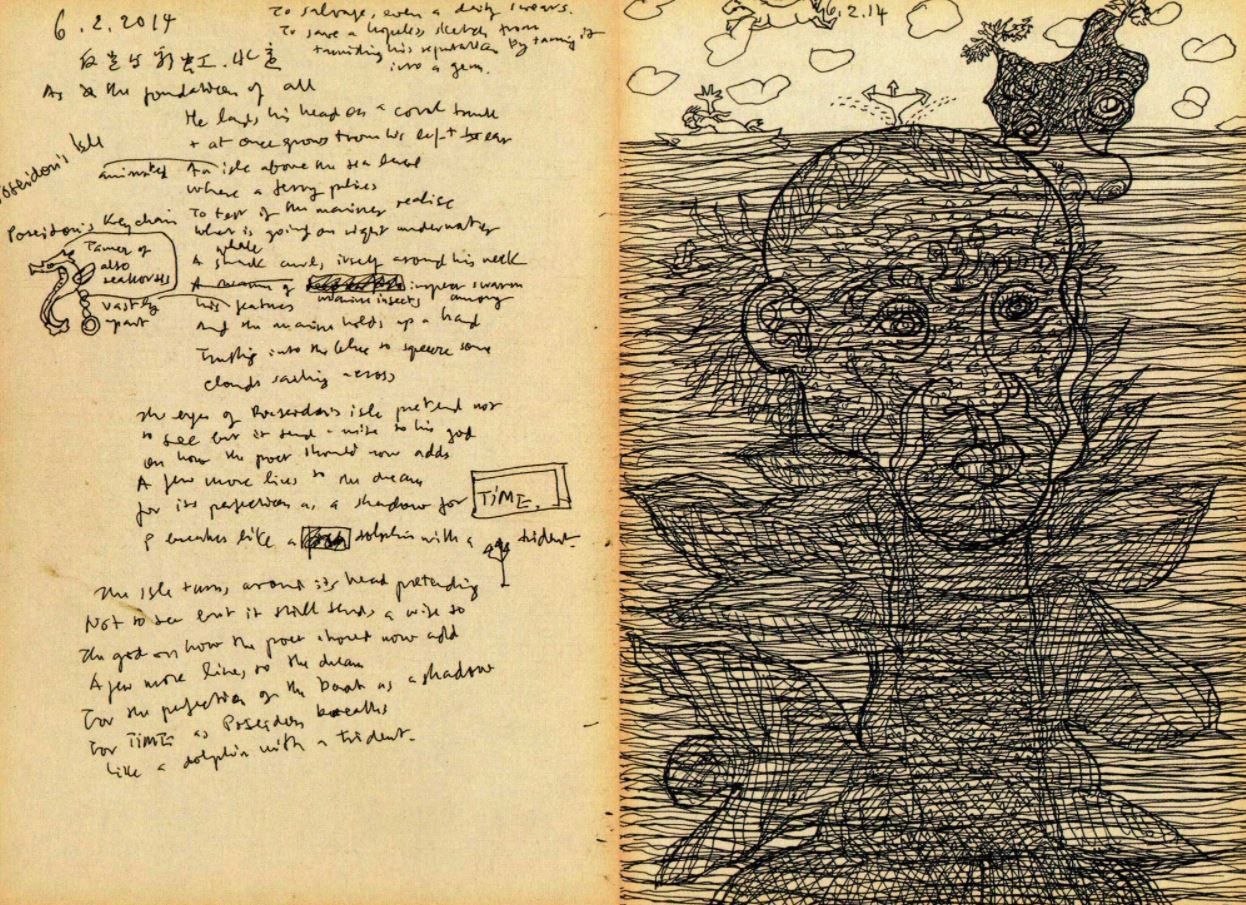 6.2.2014
To salvage, even a daily swears.
To save a hopeless sketch from
his reputation by turning it
into a gem.
As the foundation of all
He lands his head on a coral trunk
+ at once grows from his left ear
Poseidon's Isle
animated An isle above the sea level
where a ferry plies
To test if the mariner realise
Poseidon's Keychain
what is going on right underwater
whale
A shark curls itself around his neck
Tamer of
also
seahorses
A swarm of swarm
marine insects among
vastly
apart
his features
And the marine holds up a hand
into the blue to squeeze some
clouds sailing across
The eyes of Poseidon's isle pretend not
to see but it send a wise to his god
on how the poet should now adds
A few more lines to the dream
for its perfection as a shadow for TiME.
P breathes like a dolphin with a trident.
The isle turns around its head pretending
Not to see but it still sends a wise to
The god on how the poet should now add
A few more lines to the dream
For the perfection of the book as a shadow
For TiME as Poseidon breaths
like a dolphin with a trident.
6.2.14